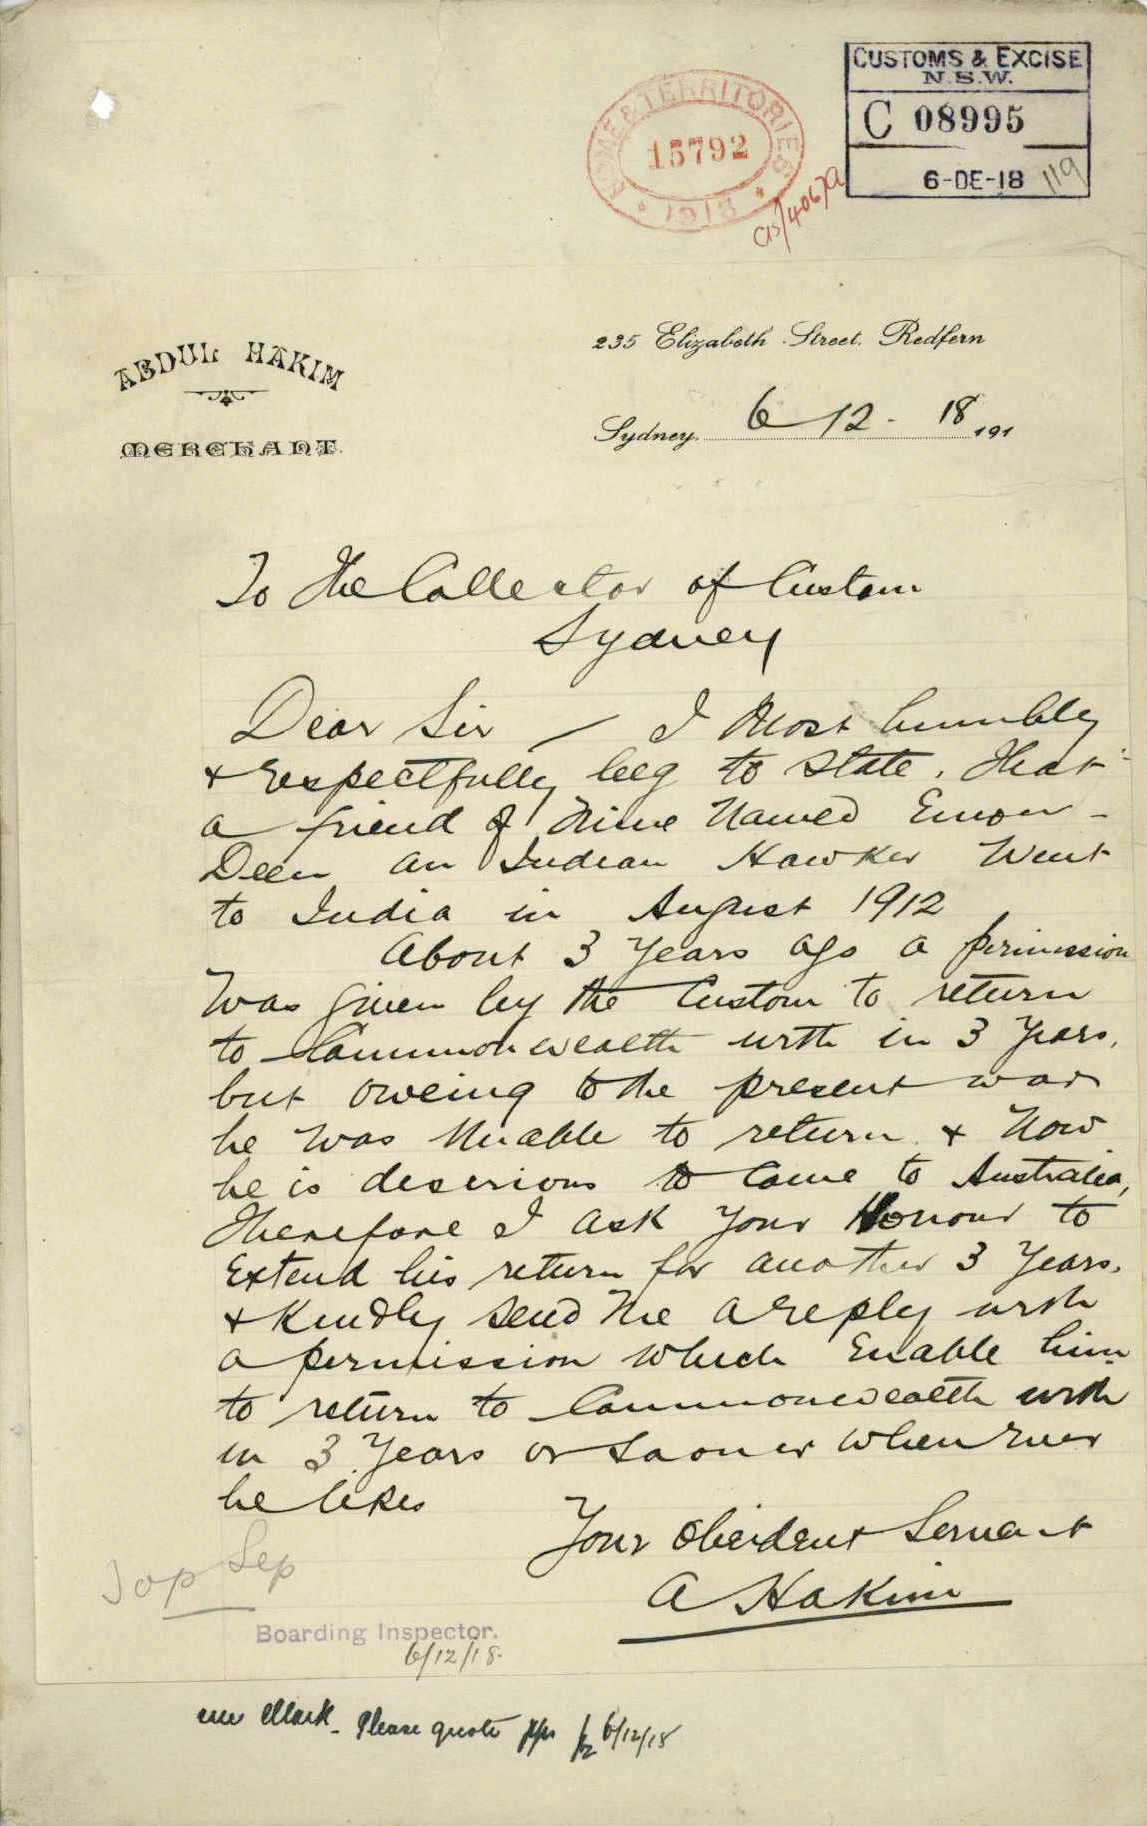 CUSTOMS & EXCISE
N.S.W.
C 08995
6-DE-18 119
HOME & TERRITORIES
15792
* 1918 *
ABDUL HAKIM
MERCHANT.
235 Elizabeth Street. Redfern
Sydney. 6-12-18 191
To The Collector of Custom
Sydney
Dear Sir / I Most humbly
& respectfully beg to state. that
a friend of Mine Named Emon-
Deen an Indian Hawker Went
to India in August 1912
About 3 Years ago a permission
Was given by the Custom to return
to Commonwealth with in 3 Years.
but oweing to the present war
he was Unable to return & Now
he is desirious to Come to Australia,
Therefore I ask Your Honour to
Extend his return for another 3 Years.
& Kindly send Me a reply with
a permission which Enable him
to return to Commonwealth with
in 3 Years or sooner when ever
he likes
Your Obeident Servant
A Hakim
Boarding Inspector.
6/12/18.
Mark. Please quote 6/12/18